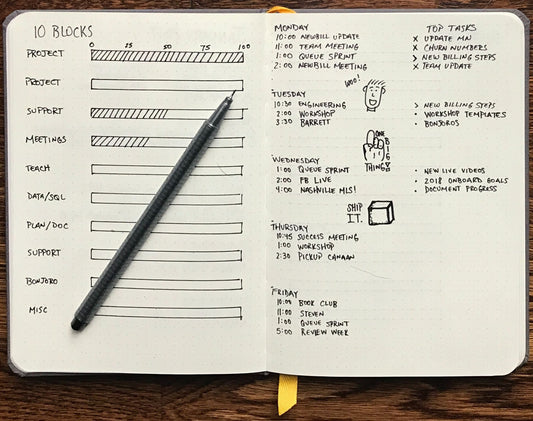 10 BLOCKS
0 25 50 75 100
PROJECT
PROJECT
SUPPORT
MEETINGS
TEACH
DATA/SQL
PLAN/DOC
SUPPORT
BONJORO
MISC
MONDAY
10:00 NEWBILL UPDATE
11:00 TEAM MEETING
1:00 QUEUE SPRINT
2:00 NEWBILL MEETING
TOP TASKS
X UPDATE MN
X CHURN NUMBERS
> NEW BILLING STEPS
X TEAM UPDATE
WOO!
TUESDAY
10:30 ENGINEERING
2:00 WORKSHOP
3:30 BARRETT
> NEW BILLING STEPS
• WORKSHOP TEMPLATES
• BONJOROS
ONE
BIG
THING
WEDNESDAY
1:00 QUEUE SPRINT
2:00 FB LIVE
4:00 NASHVILLE MLS!
• NEW LIVE VIDEOS
• 2018 ONBOARD GOALS
• DOCUMENT PROGRESS
SHIP
IT.
THURSDAY
10:45 SUCCESS MEETING
1:00 WORKSHOP
2:30 PICKUP CANAAN
FRIDAY
10:04 BOOK CLUB
11:00 STEVEN
1:00 QUEUE SPRINT
5:00 REVIEW WEEK